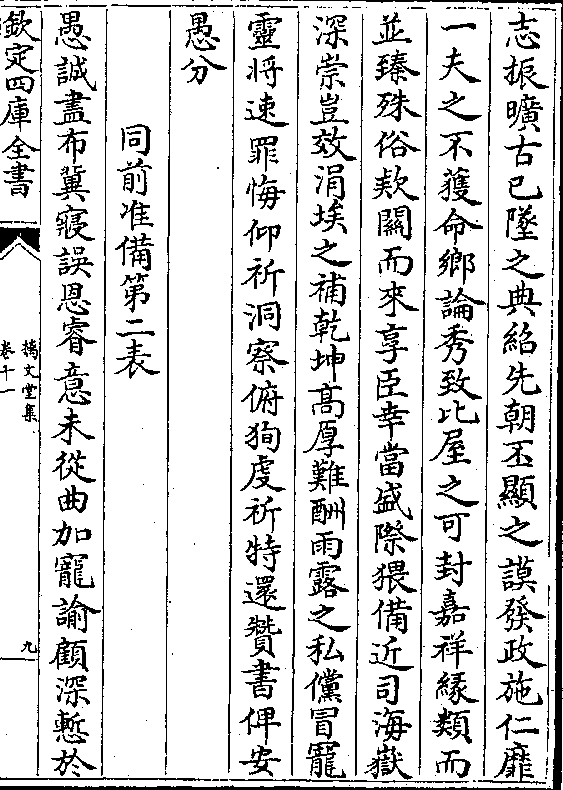 志振曠古已墜之典紹先朝丕顯之謨發政施仁靡
一夫之不獲命鄉論秀致比屋之可封嘉祥緣類而
並臻殊俗欵關而來享臣幸當盛際猥備近司海嶽
深崇豈效涓埃之補乾坤高厚難酬雨露之私儻冒寵
靈將速罪悔仰祈洞察俯狥虔祈特還贊書俾安
愚分
同前准備第二表
愚誠盡布冀寢誤恩睿意未從曲加寵諭顧深慙於
欽定四庫全書
摛文堂集
卷十一
九